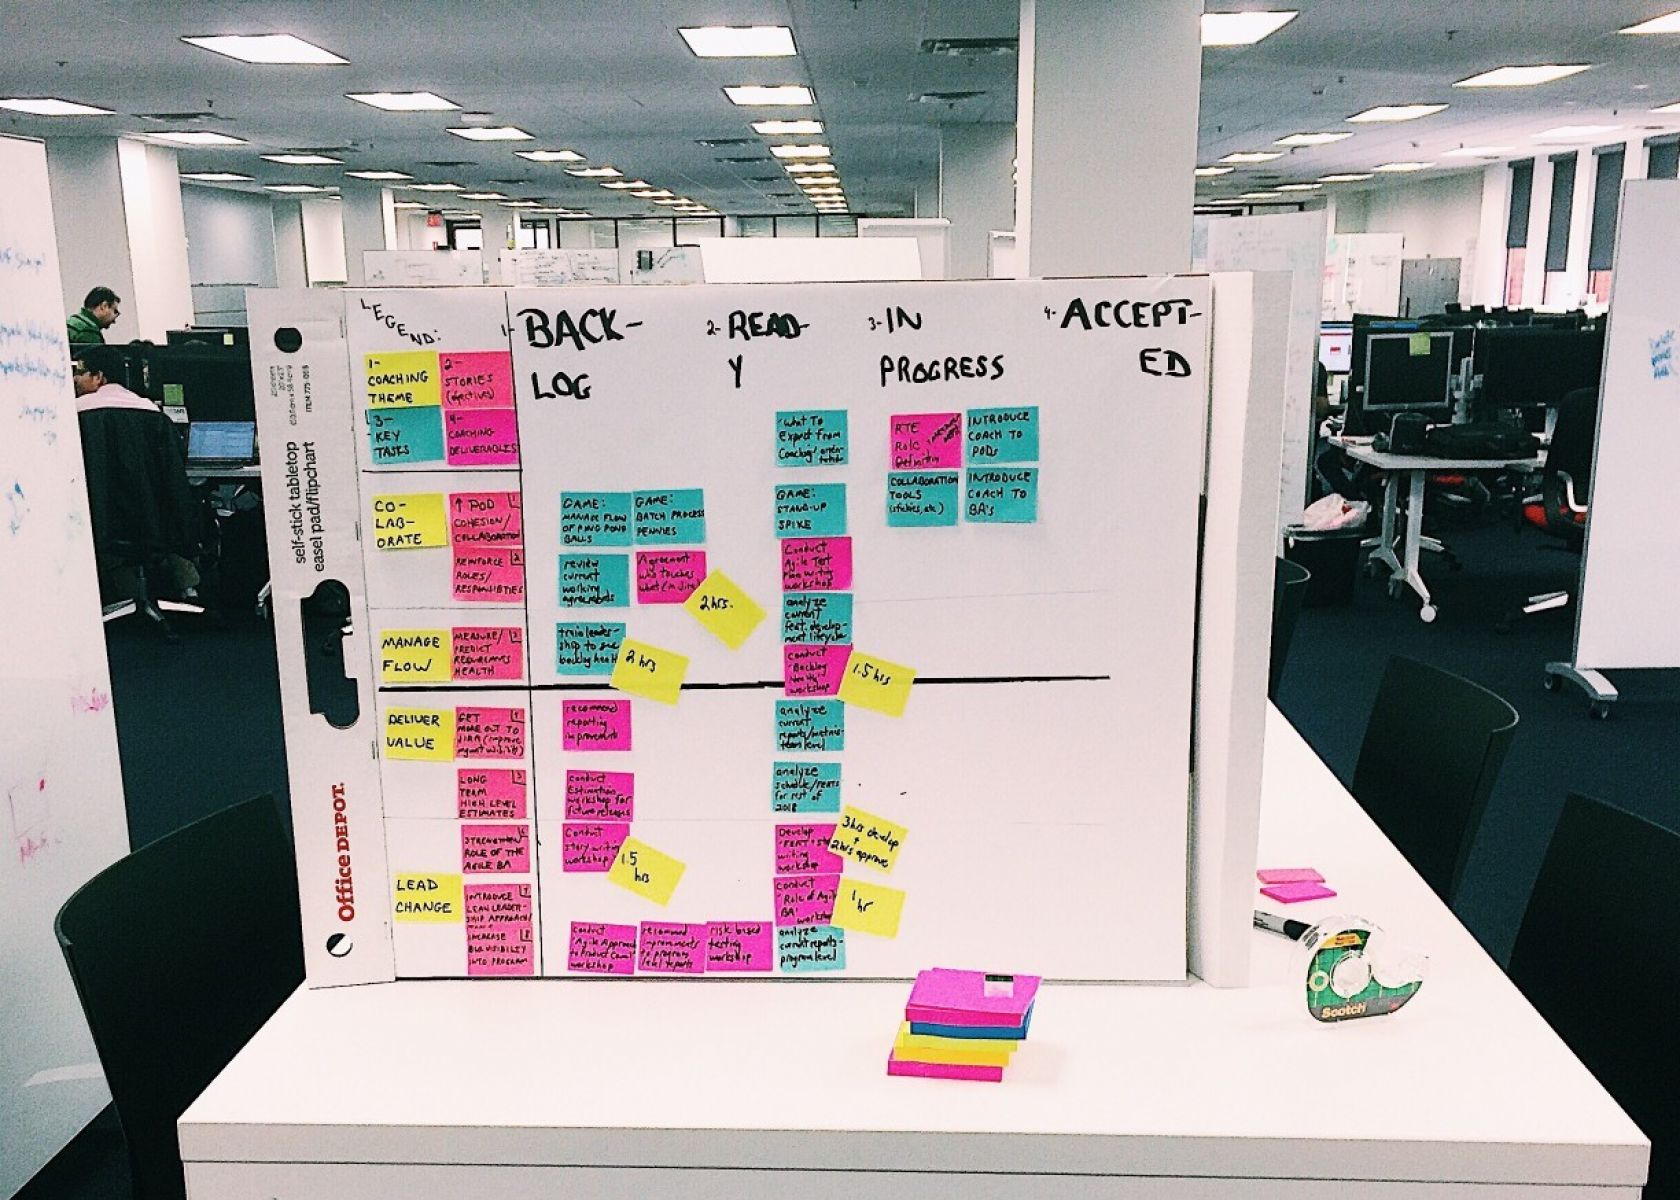 LEGEND:
1- BACK-
LOG
2- READ-
Y
3- IN
PROGRESS
4- ACCEPT-
ED
1-
COACHING
THEME
2-
STORIES
(objectives)
3-
KEY
TASKS
4-
COACHING
DELIVERABLES
CO-
LAB-
ORATE
↑ POD
COHESION/
COLLABORATION
REINFORCE
ROLES/
MANAGE
FLOW
MEASURE/
PREDICT
HEALTH
DELIVER
VALUE
GET
MORE OUT TO
JIRA (improve
LONG
TERM
HIGH LEVEL
ESTIMATES
STRENGTHEN
ROLE OF THE
AGILE BA
LEAD
CHANGE
INTRODUCE
LEAN LEADER-
SHIP APPROACH
INCREASE
VISIBILITY
INTO PROGRAM
GAME:
MANAGE FLOW
OF PING PONG
BALLS
GAME:
BATCH PROCESS
PENNIES
review
current
working
agreements
Agreement:
who touches
what
2hrs.
train leader-
ship to see
backlog health
2 hrs
recommend
reporting
improvements
conduct
Estimation
workshop for
future releases
Conduct
story writing
workshop
1.5
hrs
conduct
Agile Approach
to Product
workshop
recommend
improvements
to program
level reports
risk based
testing
workshop
What To
Expect from
Coaching/orien-
tation
GAME:
STAND-UP
SPIKE
Conduct
Agile Test
Plan writing
workshop
analyze
current
feat. develop-
ment lifecycle
conduct
Backlog
workshop
1.5 hrs
analyze
current
reports/metrics-
team level
analyze
schedule/FEATS
for rest of
2018
Develop
writing
workshop
3hrs develop
+
2hrs approve
conduct
Role of Agile
BA
workshop
1
hr
analyze
current reports-
program level
RTE
Role
Definition
INTRODUCE
COACH TO
PODs
COLLABORATION
TOOLS
(stickies, etc.)
INTRODUCE
COACH TO
BA's
self-stick tabletop
easel pad/flipchart
Office DEPOT.
Scotch